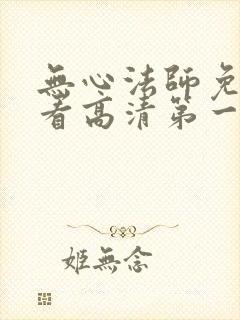 無心法師免
看高清第一
姬無念